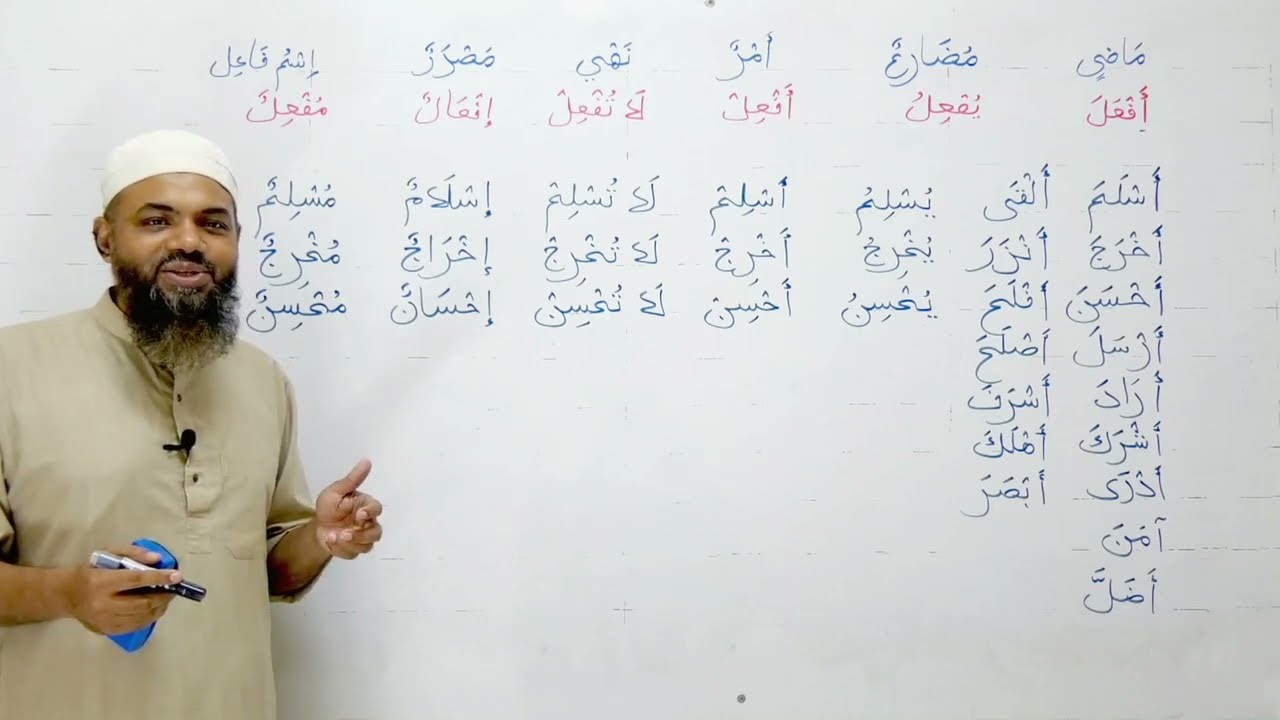 مَاضٍي مُضَارِعٌ أَمْرٌ نَهْي مَصْدَرٌ إِسْمُ فَاعِل
أَفْعَلَ يُفْعِلُ أَفْعِلْ لَا تُفْعِلْ إِفْعَالٌ مُفْعِلٌ
أَسْلَمَ أَلْقَى يُسْلِمُ أَسْلِمْ لَا تُسْلِمْ إِسْلَامٌ مُسْلِمٌ
أَخْرَجَ أَنْزَرَ يُخْرِجُ أَخْرِجْ لَا تُخْرِجْ إِخْرَاجٌ مُخْرِجٌ
أَحْسَنَ أَفْلَحَ يُحْسِنُ أَحْسِنْ لَا تُحْسِنْ إِحْسَانٌ مُحْسِنٌ
أَرْسَلَ أَصْلَحَ
أَرَادَ أَسْرَفَ
أَشْرَكَ أَهْلَكَ
أَدْرَى أَبْصَرَ
آمَنَ
أَضَلَّ